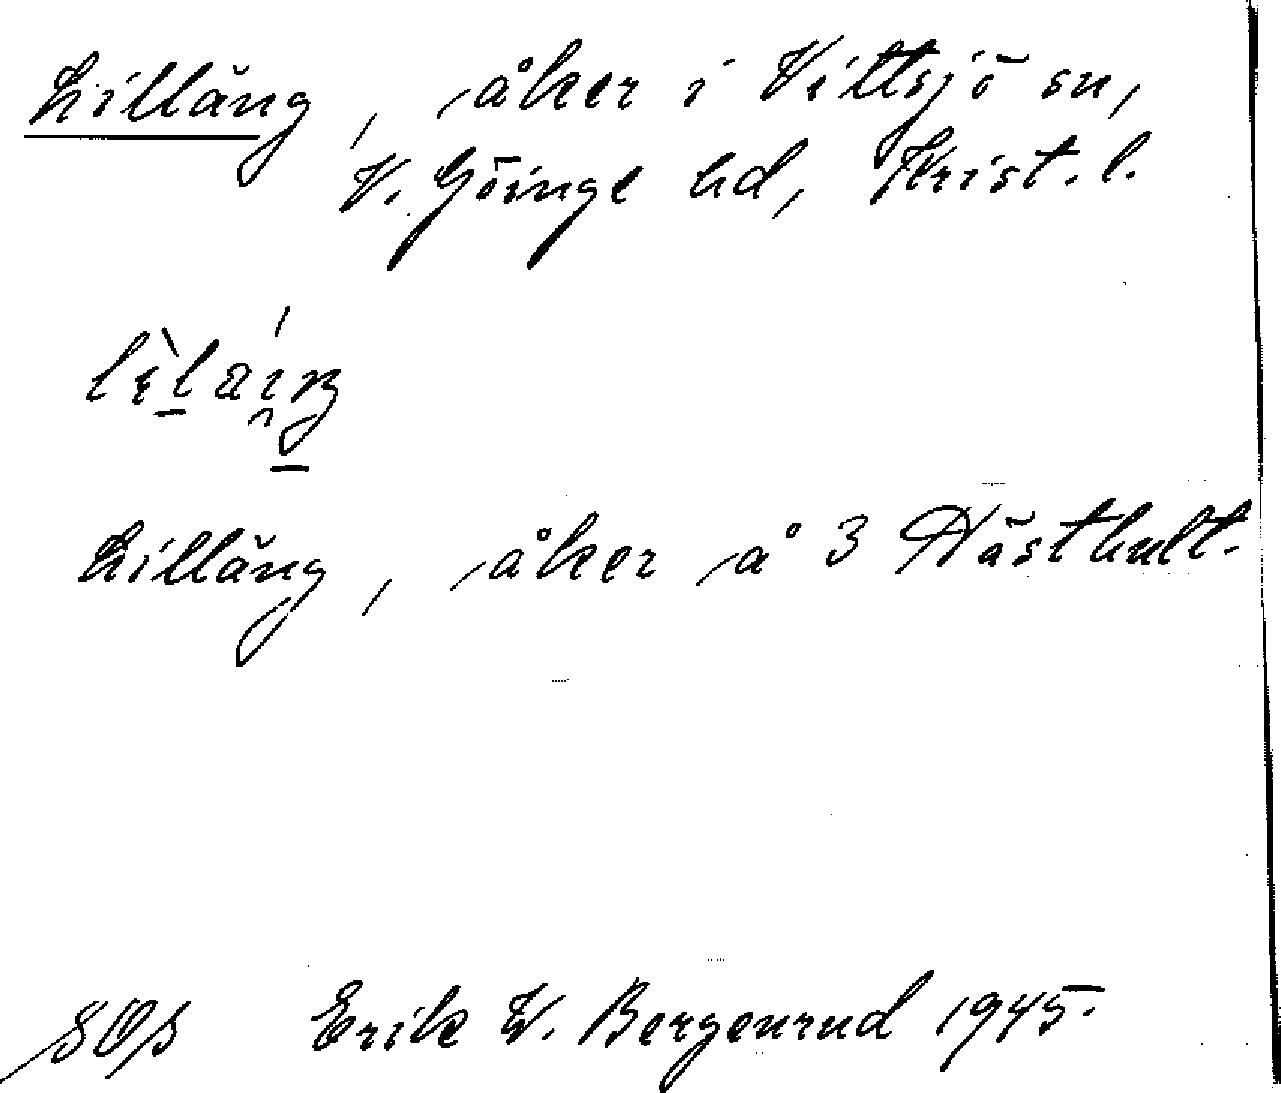 Lilläng, åker i Vittsjö sn,
V. Göinge hd, Krist. l.
Lilläng, åker å 3 Hästhult.
Erik W. Bergenrud 1945.